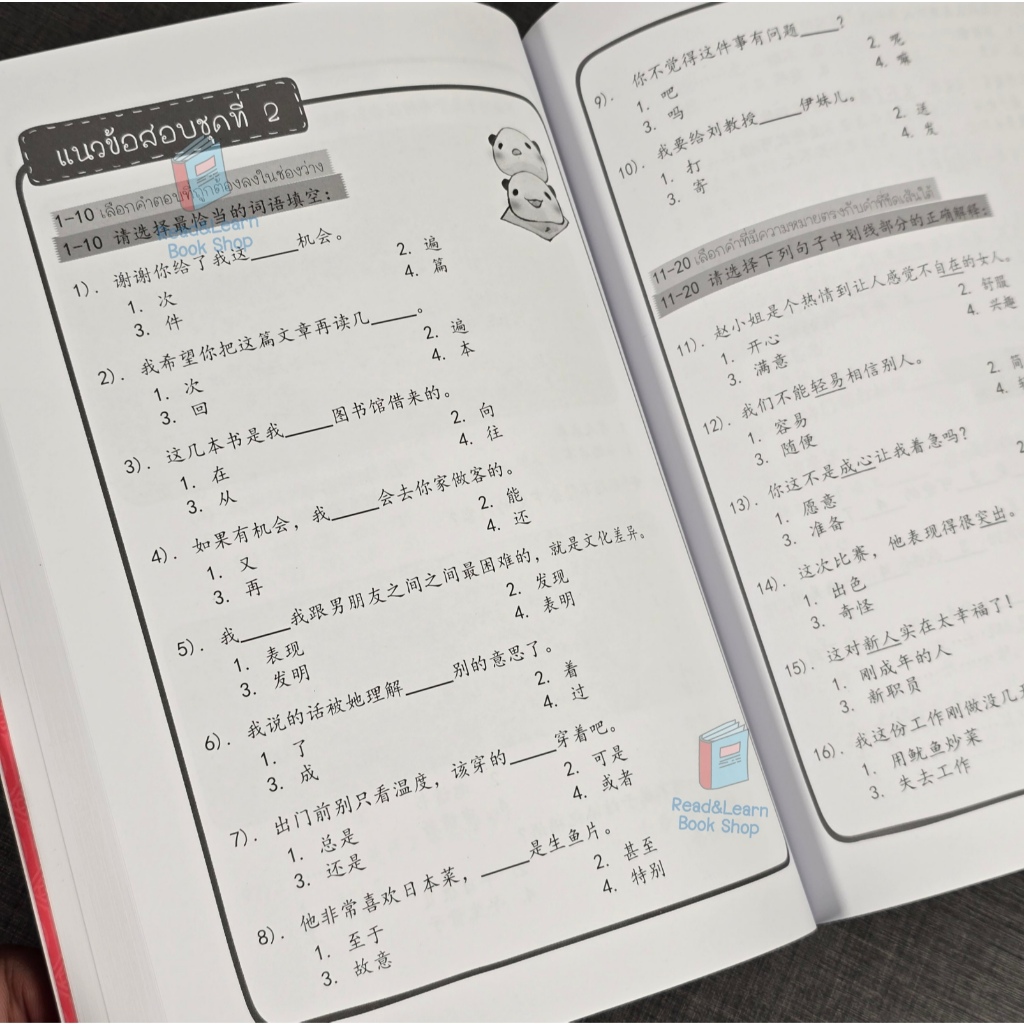 แนวข้อสอบชุดที่ 2
1-10 เลือกคำตอบที่ถูกต้องลงในช่องว่าง
1-10 请选择最恰当的词语填空：
Read&Learn
Book Shop
1). 谢谢你给了我这____机会。
1. 次 2. 遍
3. 件 4. 篇
2). 我希望你把这篇文章再读几____。
1. 次 2. 遍
3. 回 4. 本
3). 这几本书是我____图书馆借来的。
1. 在 2. 向
3. 从 4. 往
4). 如果有机会，我____会去你家做客的。
1. 又 2. 能
3. 再 4. 还
5). 我____我跟男朋友之间之间最困难的，就是文化差异。
1. 表现 2. 发现
3. 发明 4. 表明
6). 我说的话被她理解____别的意思了。
1. 了 2. 着
3. 成 4. 过
7). 出门前别只看温度，该穿的____穿着吧。
1. 总是 2. 可是
3. 还是 4. 或者
8). 他非常喜欢日本菜，____是生鱼片。
1. 至于 2. 甚至
3. 故意 4. 特别
Read&Learn
Book Shop
9). 你不觉得这件事有问题____?
1. 吧 2. 呢
3. 吗 4. 嘛
10). 我要给刘教授____伊妹儿。
1. 打 2. 送
3. 寄 4. 发
11-20 เลือกคำที่มีความหมายตรงกับคำที่ขีดเส้นใต้
11-20 请选择下列句子中划线部分的正确解释：
11). 赵小姐是个热情到让人感觉不自在的女人。
1. 开心 2. 舒服
3. 满意 4. 兴趣
12). 我们不能轻易相信别人。
1. 容易 2. 简
3. 随便 4.
13). 你这不是成心让我着急吗？
1. 愿意
3. 准备
14). 这次比赛，他表现得很突出。
1. 出色
3. 奇怪
15). 这对新人实在太幸福了！
1. 刚成年的人
3. 新职员
16). 我这份工作刚做没几
1. 用鱿鱼炒菜
3. 失去工作